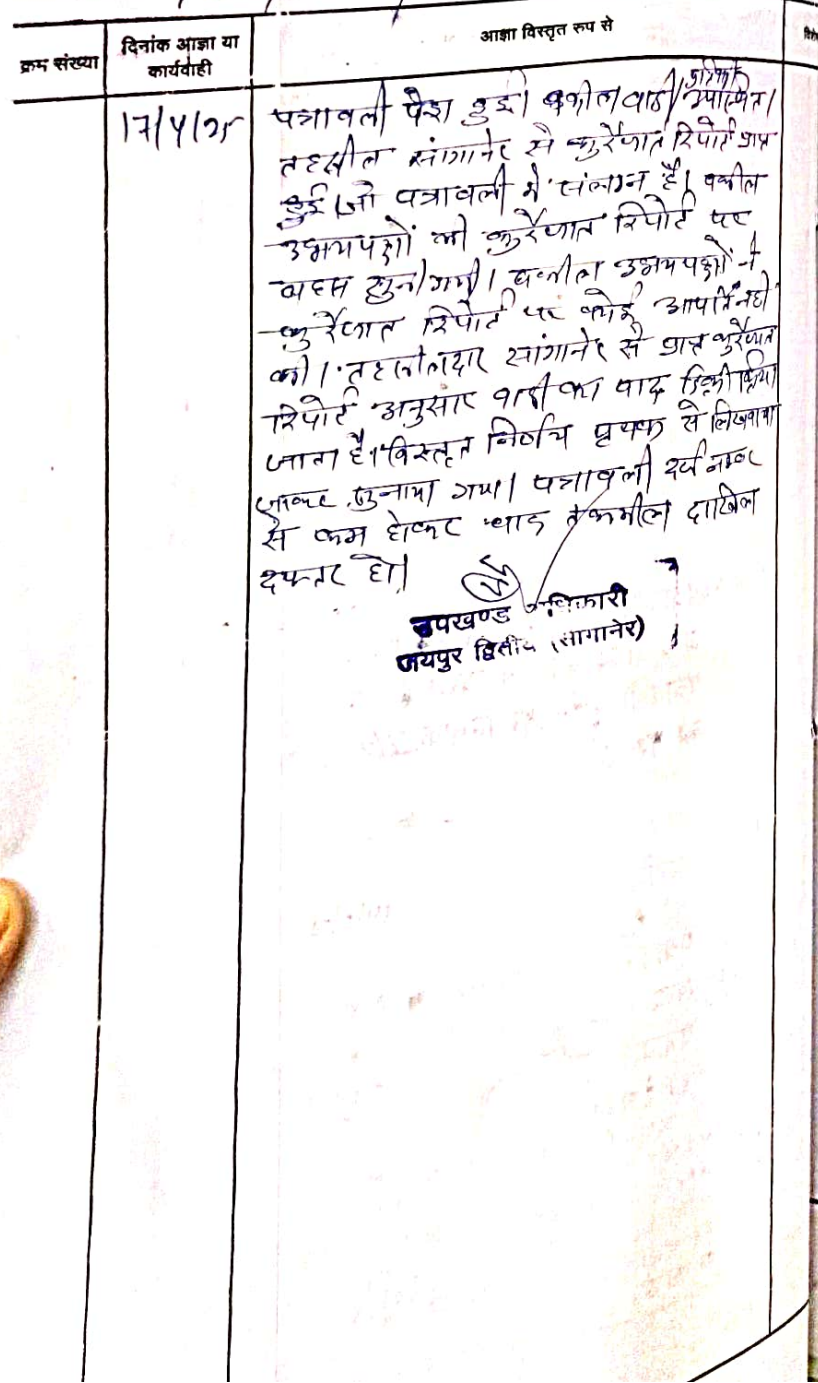 क्रम संख्या
दिनांक आज्ञा या
कार्यवाही
आज्ञा विस्तृत रुप से
17/4/25
पत्रावली पेश हुई। वकील वादी/प्रतिवादी उपस्थित।
तहसील सांगानेर से कुर्रेजात रिपोर्ट प्राप्त
हुई जो पत्रावली में संलग्न है। वकील
उभयपक्षों की कुर्रेजात रिपोर्ट पर
बहस सुनी गयी। वकील उभयपक्षों ने
कुर्रेजात रिपोर्ट पर कोई आपत्ति नहीं
की। तहसीलदार सांगानेर से प्राप्त कुर्रेजात
रिपोर्ट अनुसार वादी का वाद डिक्री किया
जाता है। विस्तृत निर्णय पृथक से लिखवाया
जाकर सुनाया गया। पत्रावली दर्ज नम्बर
से कम होकर बाद तकमील दाखिल
दफ्तर हो।
उपखण्ड अधिकारी
जयपुर द्वितीय (सांगानेर)